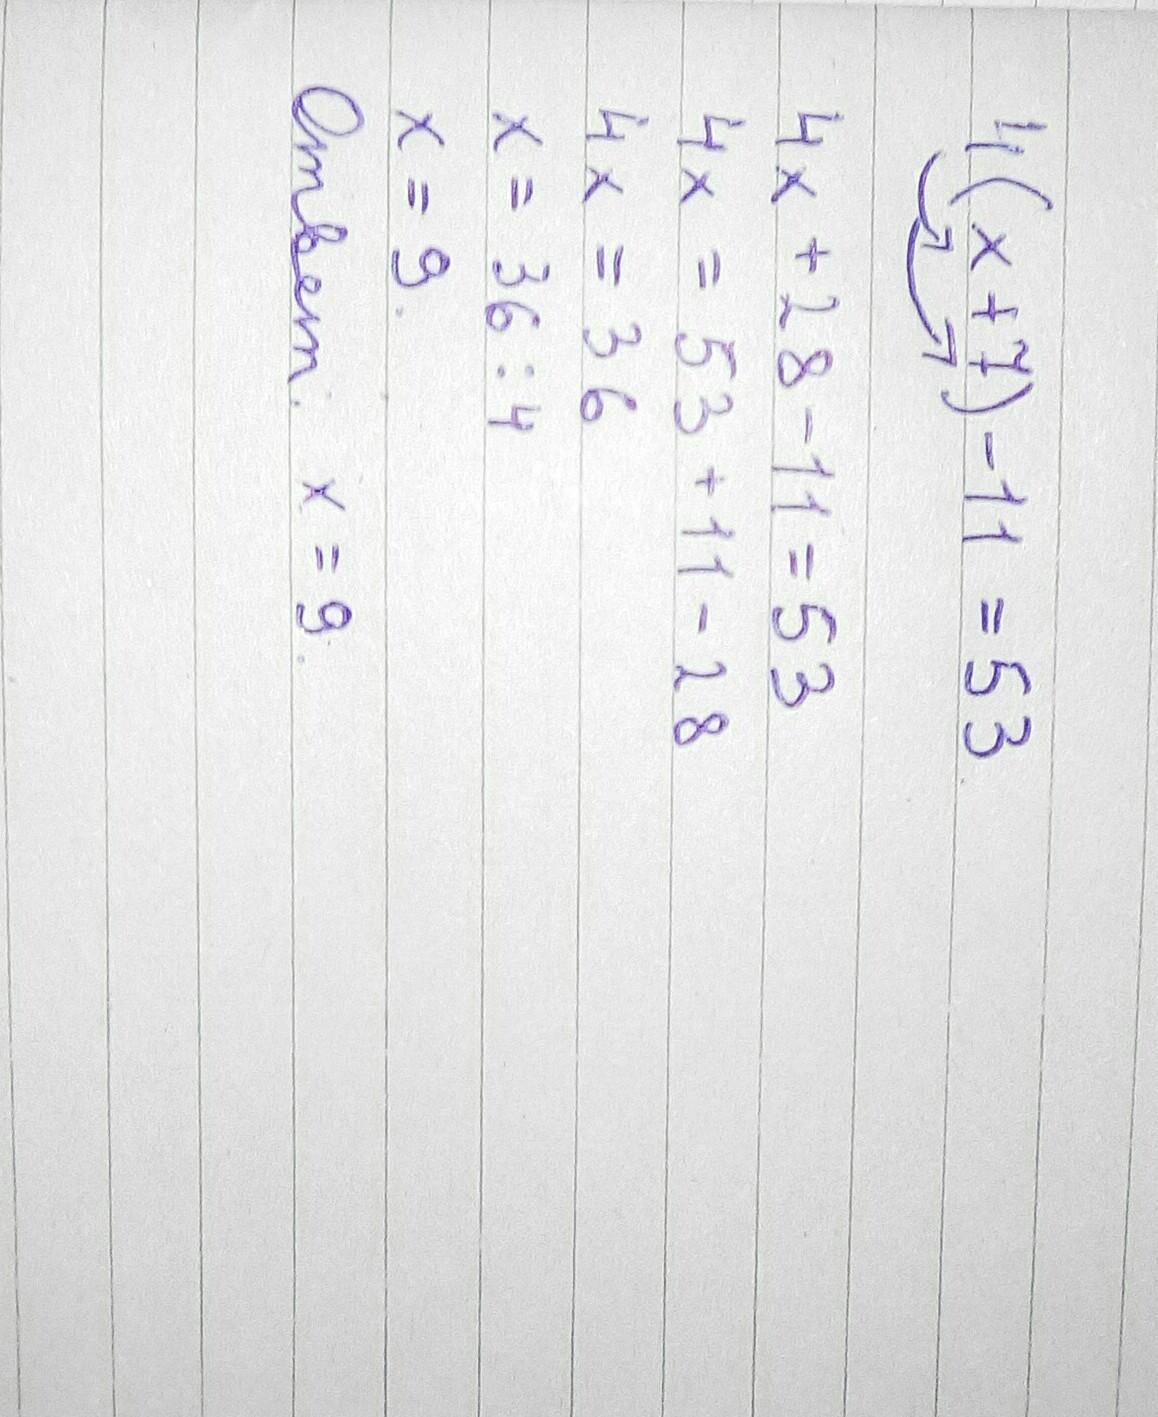 4(x+7)-11=53
4x+28-11=53
4x=53+11-28
4x=36
x=36:4
x=9.
Ответ: x=9.